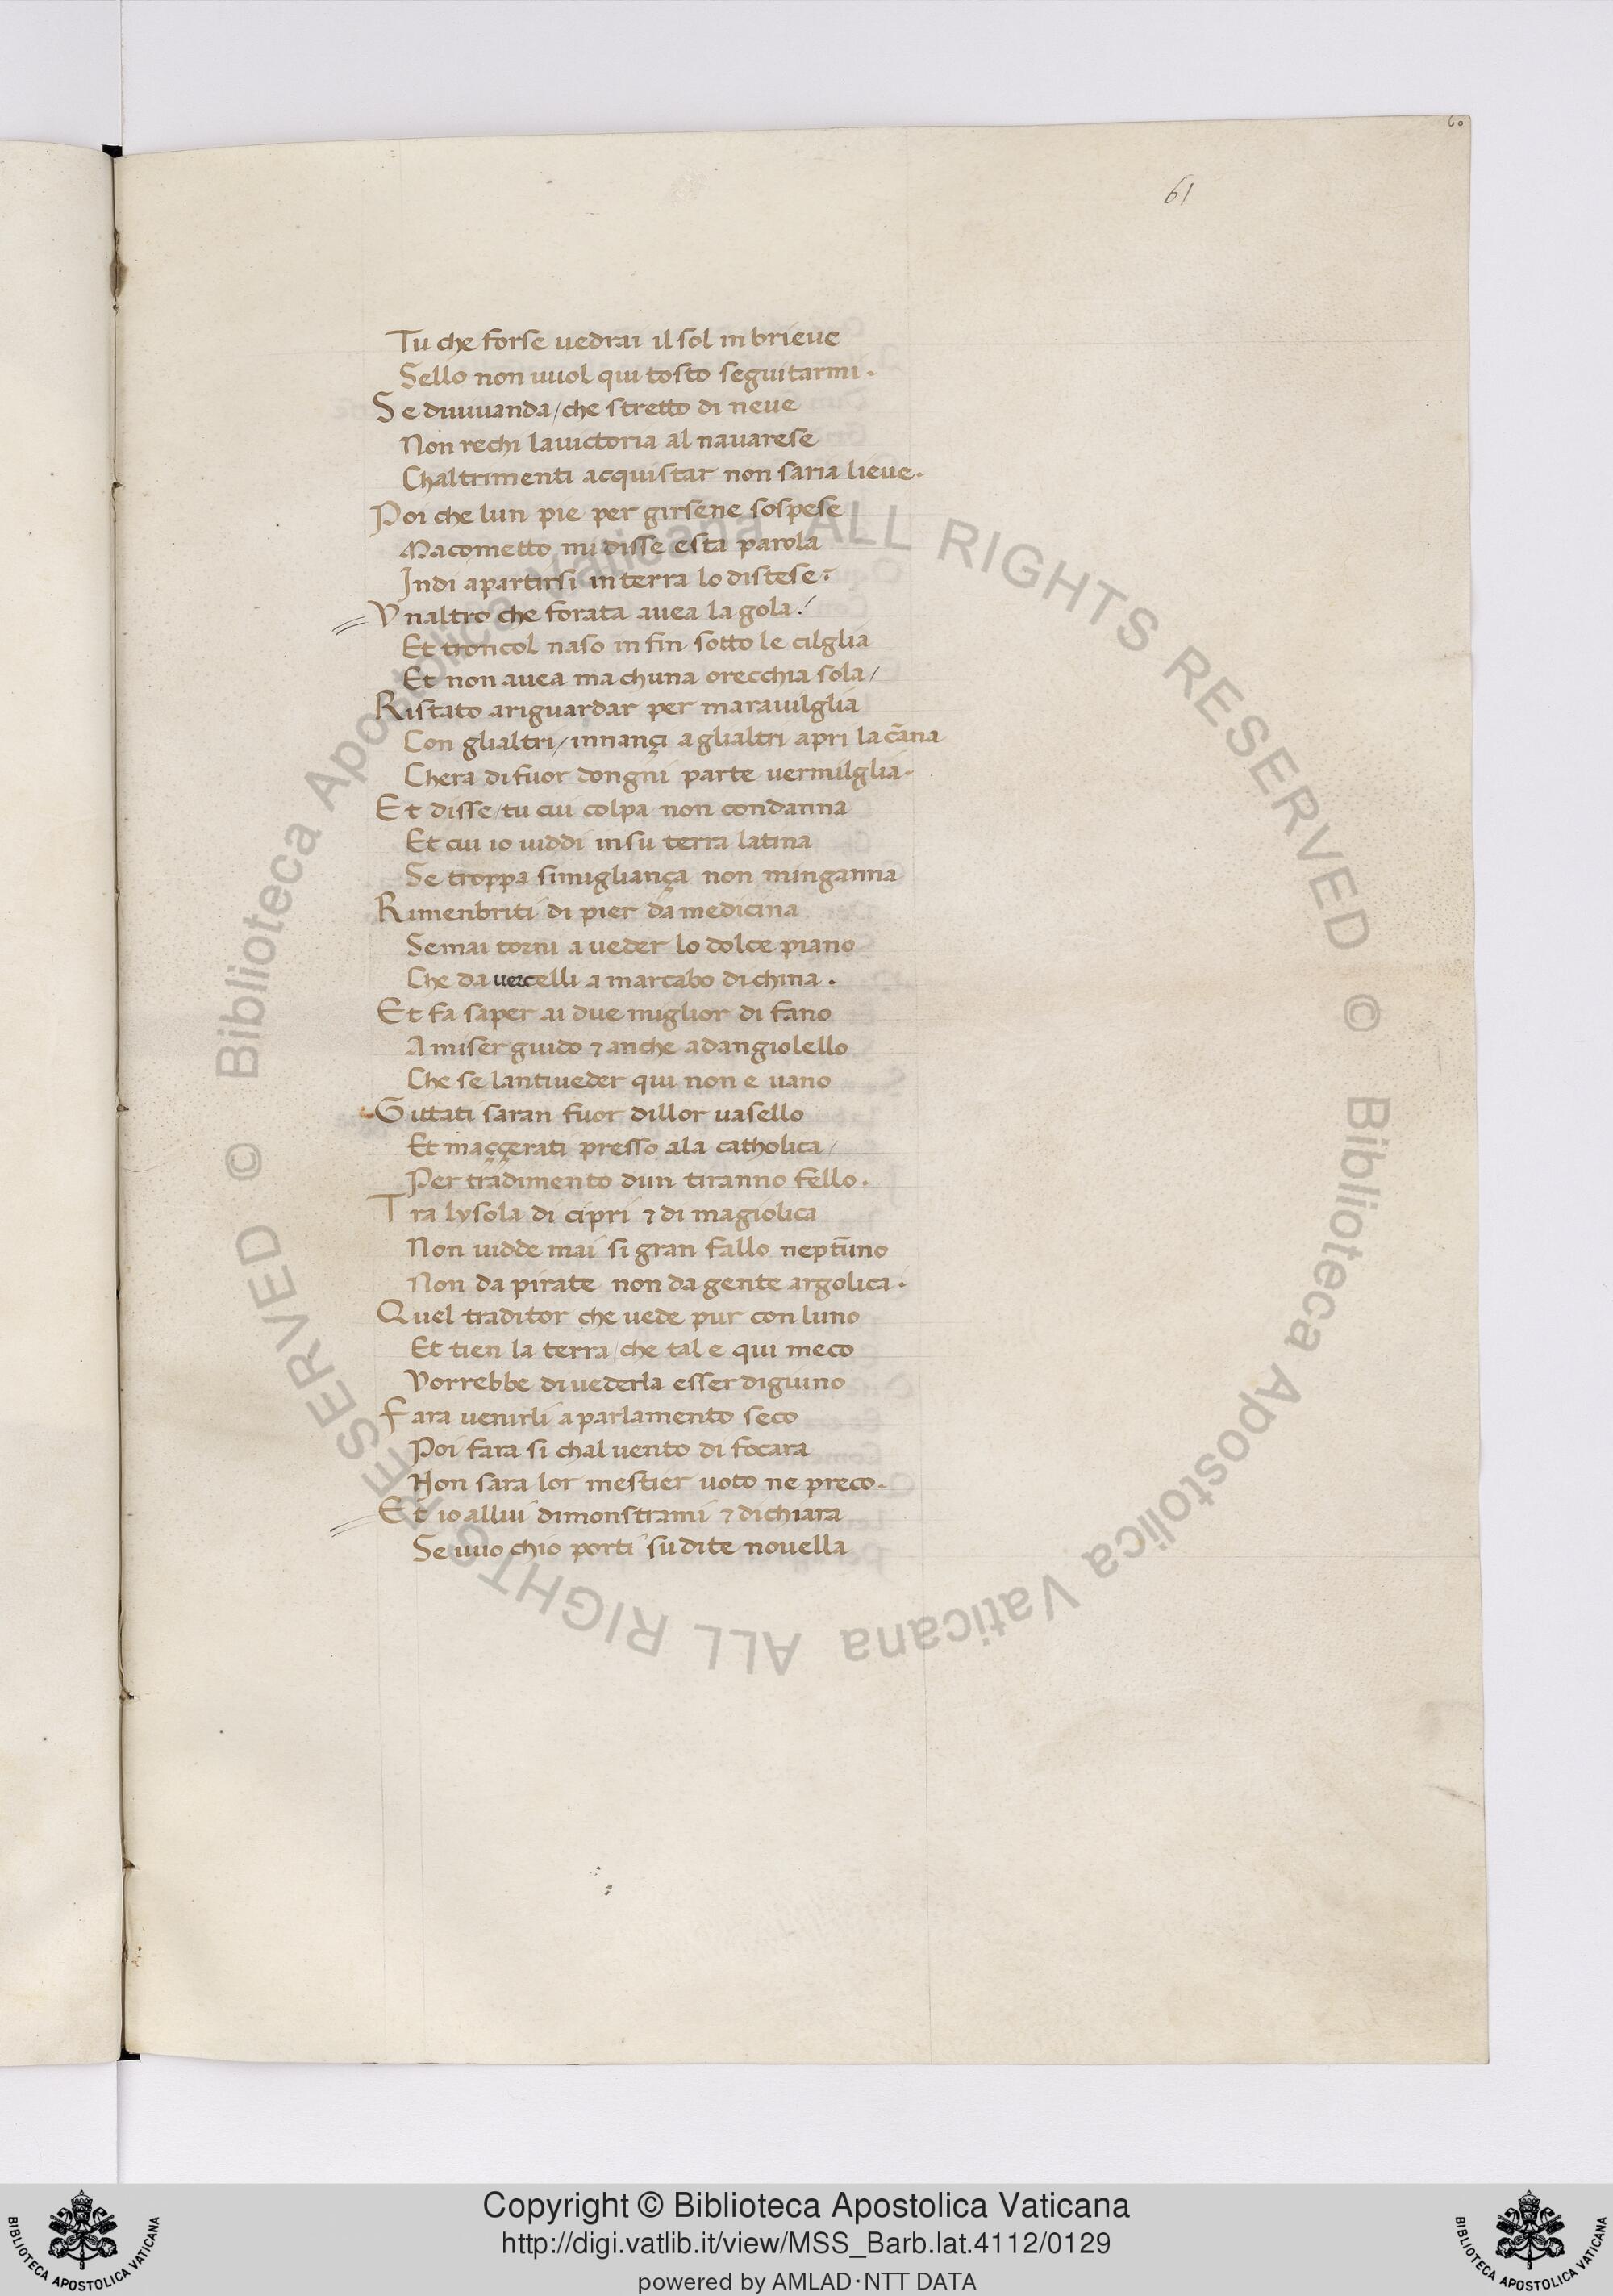 60
61
Tu che forse uedrai il sol in brieue
Sello non uuol qui tosto seguitarmi.
Se diuiuanda/che stretto di neue
Non rechi lauictoria al nauarese
Chaltrimenti acquistar non saria lieue.
Poi che lun pie per girsene sospese
Macometto mi disse esta parola
Indi apartirsi in terra lo distese.
Vnaltro che forata auea la gola.
Et troncol naso in fin sotto le cilglia
Et non auea ma chuna orecchia sola/
Ristato ariguardar per marauilglia
Con glialtri/innançi aglialtri apri la cãna
Chera di fuor dongni parte uermilglia.
Et disse/tu cui colpa non condanna
Et cui io uiddi insu terra latina
Se troppa simigliança non minganna
Rimenbriti di pier da medicina
Semai torni a ueder lo dolce piano
Che da uercelli a marcabo dichina.
Et fa saper ai due miglior di fano
A miser guido ⁊ anche adangiolello
Che se lantiueder qui non e uano
Gittati saran fuor dillor uasello
Et maççerati presso ala catholica/
Per tradimento dun tiranno fello.
Tra lysola di cipri ⁊ di magiolica
Non uidde mai si gran fallo neptũno
Non da pirate non da gente argolica.
Quel traditor che uede pur con luno
Et tien la terra/che tal e qui meco
Vorrebbe di uederla esser digiuno
Fara uenirli aparlamento seco
Poi fara si chal uento di focara
Non sara lor mestier uoto ne preco.
Et io allui dimonstrami ⁊ dichiara
Se uuo chio porti su dite nouella
© Biblioteca Apostolica Vaticana ALL RIGHTS RESERVED © Biblioteca Apostolica Vaticana ALL RIGHTS RESERVED
BIBLIOTECA APOSTOLICA VATICANA
Copyright © Biblioteca Apostolica Vaticana
http://digi.vatlib.it/view/MSS_Barb.lat.4112/0129
powered by AMLAD·NTT DATA
BIBLIOTECA APOSTOLICA VATICANA